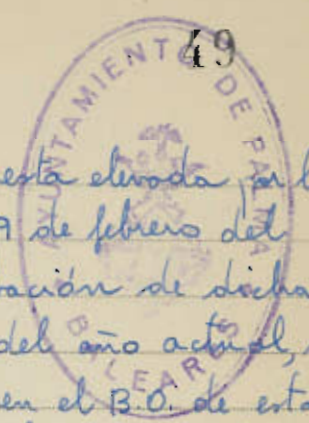 49
AYUNTAMIENTO DE PALMA
BALEARES
esta elevada por l
9 de febrero del
ración de dicha
del año actual,
en el B.O. de esta